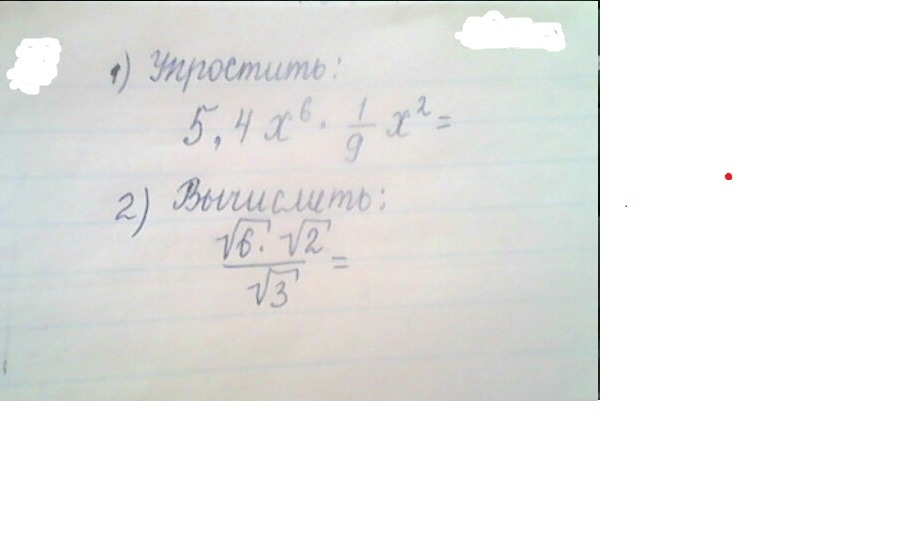 1) Упростить:
5,4 x⁶ · 1/9 x² =
2) Вычислить:
√6 · √2 / √3 =